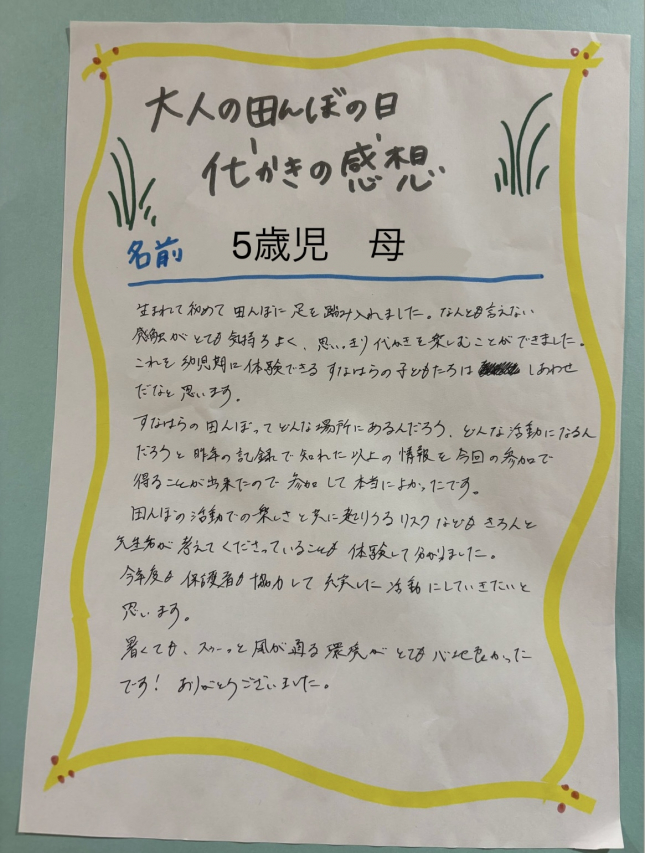 大人の田んぼの日
代かきの感想
名前　5歳児　母
生まれて初めて田んぼに足を踏み入れました。なんとも言えない
感触がとても気持ちよく、思いっきり代かきを楽しむことができました。
これを幼児期に体験できるすなはらの子どもたちは しあわせ
だなと思います。
すなはらの田んぼってどんな場所にあるんだろう、どんな活動になるん
だろうと昨年の記録で知れた以上の情報を今回の参加で
得ることが出来たので参加して本当によかったです。
田んぼの活動での楽しさと共に起りうるリスクなども きちんと
先生方が考えてくださっていることも 体験して分かりました。
今年度も 保護者も協力して充実した活動にしていきたいと
思います。
暑くても、スゥーっと風が通る環境がとても心地良かった
です! ありがとうございました。